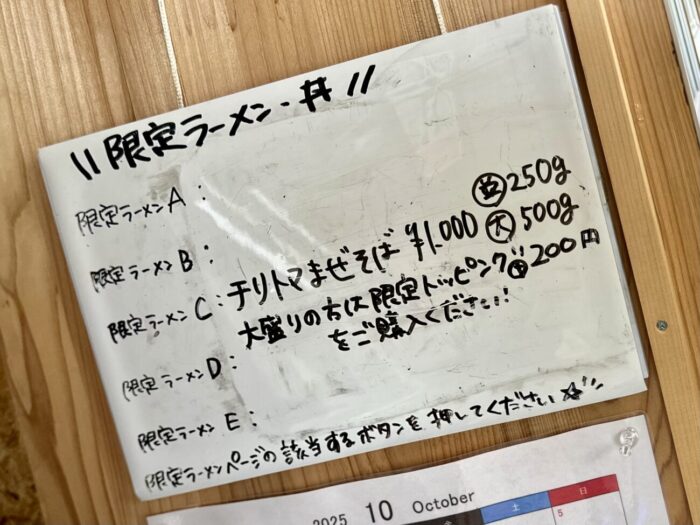 \\ 限定ラーメン・丼 //
限定ラーメンA：
限定ラーメンB：
限定ラーメンC：チリトマまぜそば ¥1.000 並250g 大500g
大盛りの方は限定トッピング 200円
をご購入ください！
限定ラーメンD：
限定ラーメンE：
限定ラーメンページの該当するボタンを押してください☆
2025 10 October
土 日
5